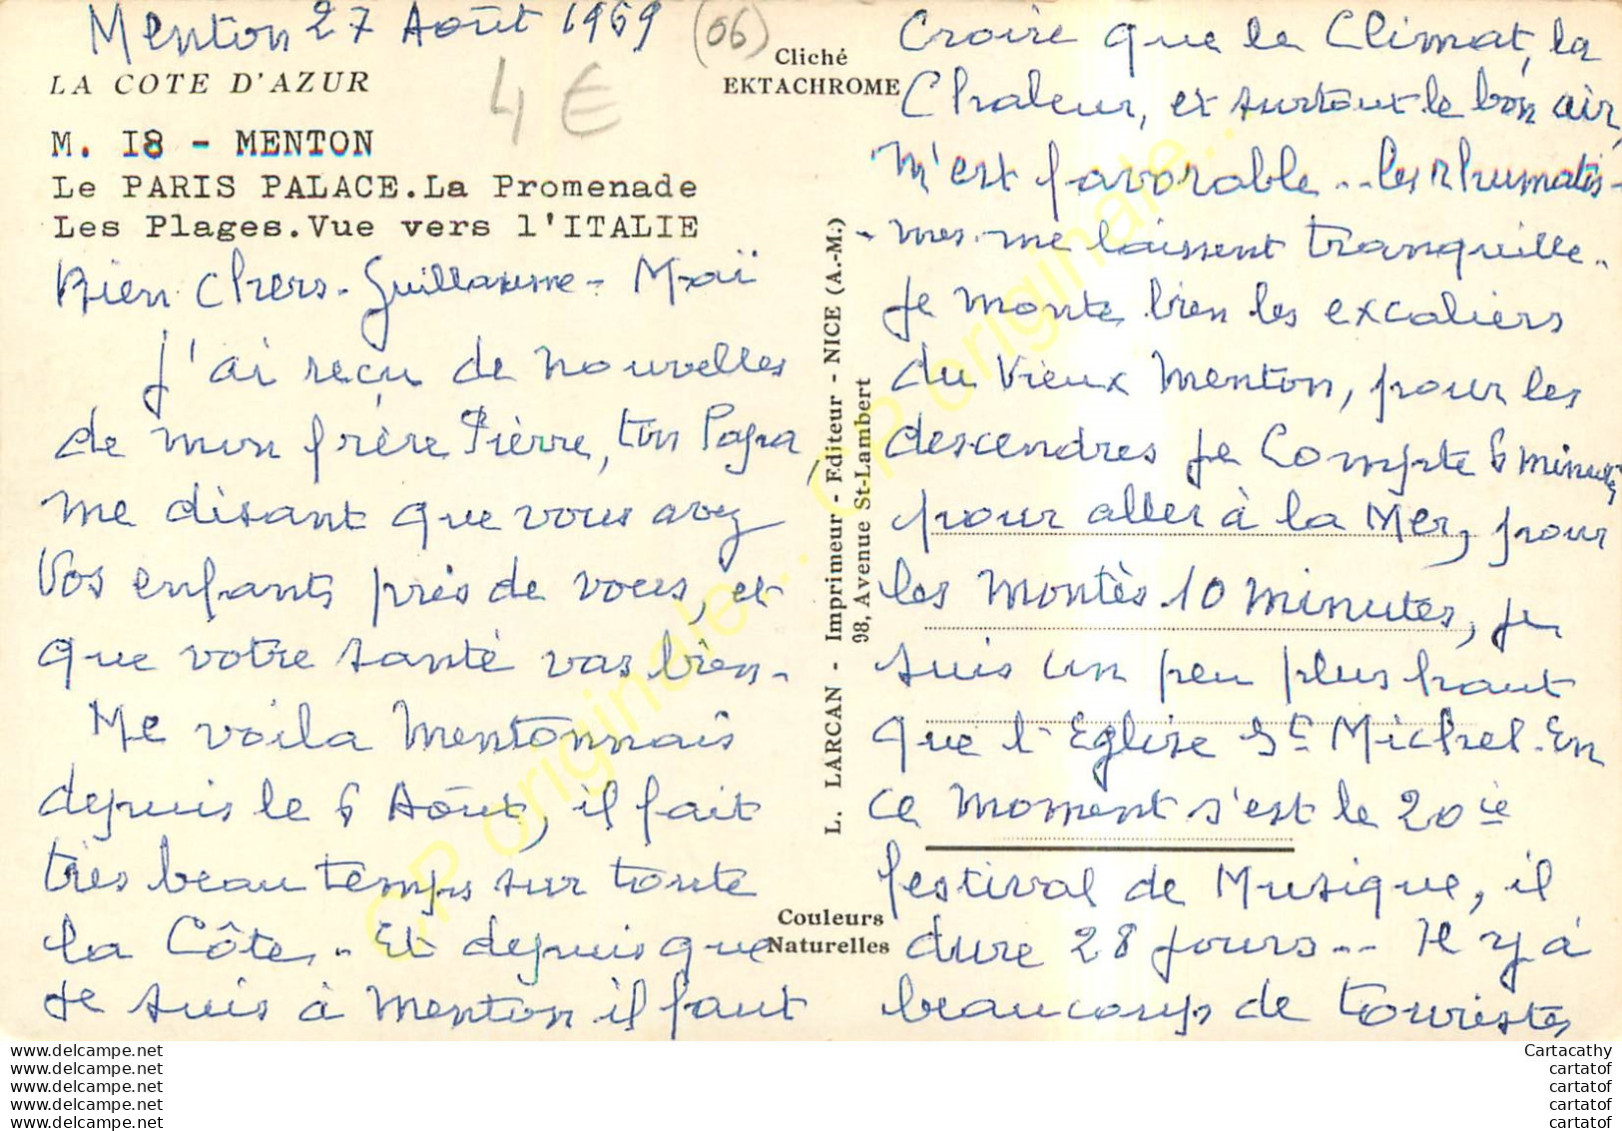 Menton 27 Août 1969 (06)
LA COTE D'AZUR
4 €
M. I8 - MENTON
Le PARIS PALACE.La Promenade
Les Plages.Vue vers l'ITALIE
Bien Chers - Guillaume - Maï
J'ai reçu de nouvelles
de mon frère Pièrre, ton Papa,
me disant que vous avez
Vos enfants près de vous, et
que votre santé vas bien -
Me voila Mentonnais
depuis le 6 Août, il fait
très beau temps sur toute
la Côte - Et depuis que
Je suis à Menton il faut
Cliché
EKTACHROME
L. LARCAN - Imprimeur - Editeur - NICE (A.-M.)
98, Avenue St-Lambert
Couleurs
Naturelles
Croire que le Climat, la
Chaleur, et surtout le bon air,
M'est favorable -- les rhumatis-
- mes me laissent tranquille.
Je monte bien les excaliers
du Vieux Menton, pour les
descendres Je Compte 6 minutes
pour aller à la Mer, pour
les Montès 10 minutes, Je
suis un peu plus haut
que l'Eglise St Michel. En
ce moment s'est le 20ie
festival de Musique, il
dure 28 jours -- Il y à
beaucoups de touristes
CP originale... CP originale...
www.delcampe.net
www.delcampe.net
www.delcampe.net
www.delcampe.net
www.delcampe.net
Cartacathy
cartatof
cartatof
cartatof
cartatof